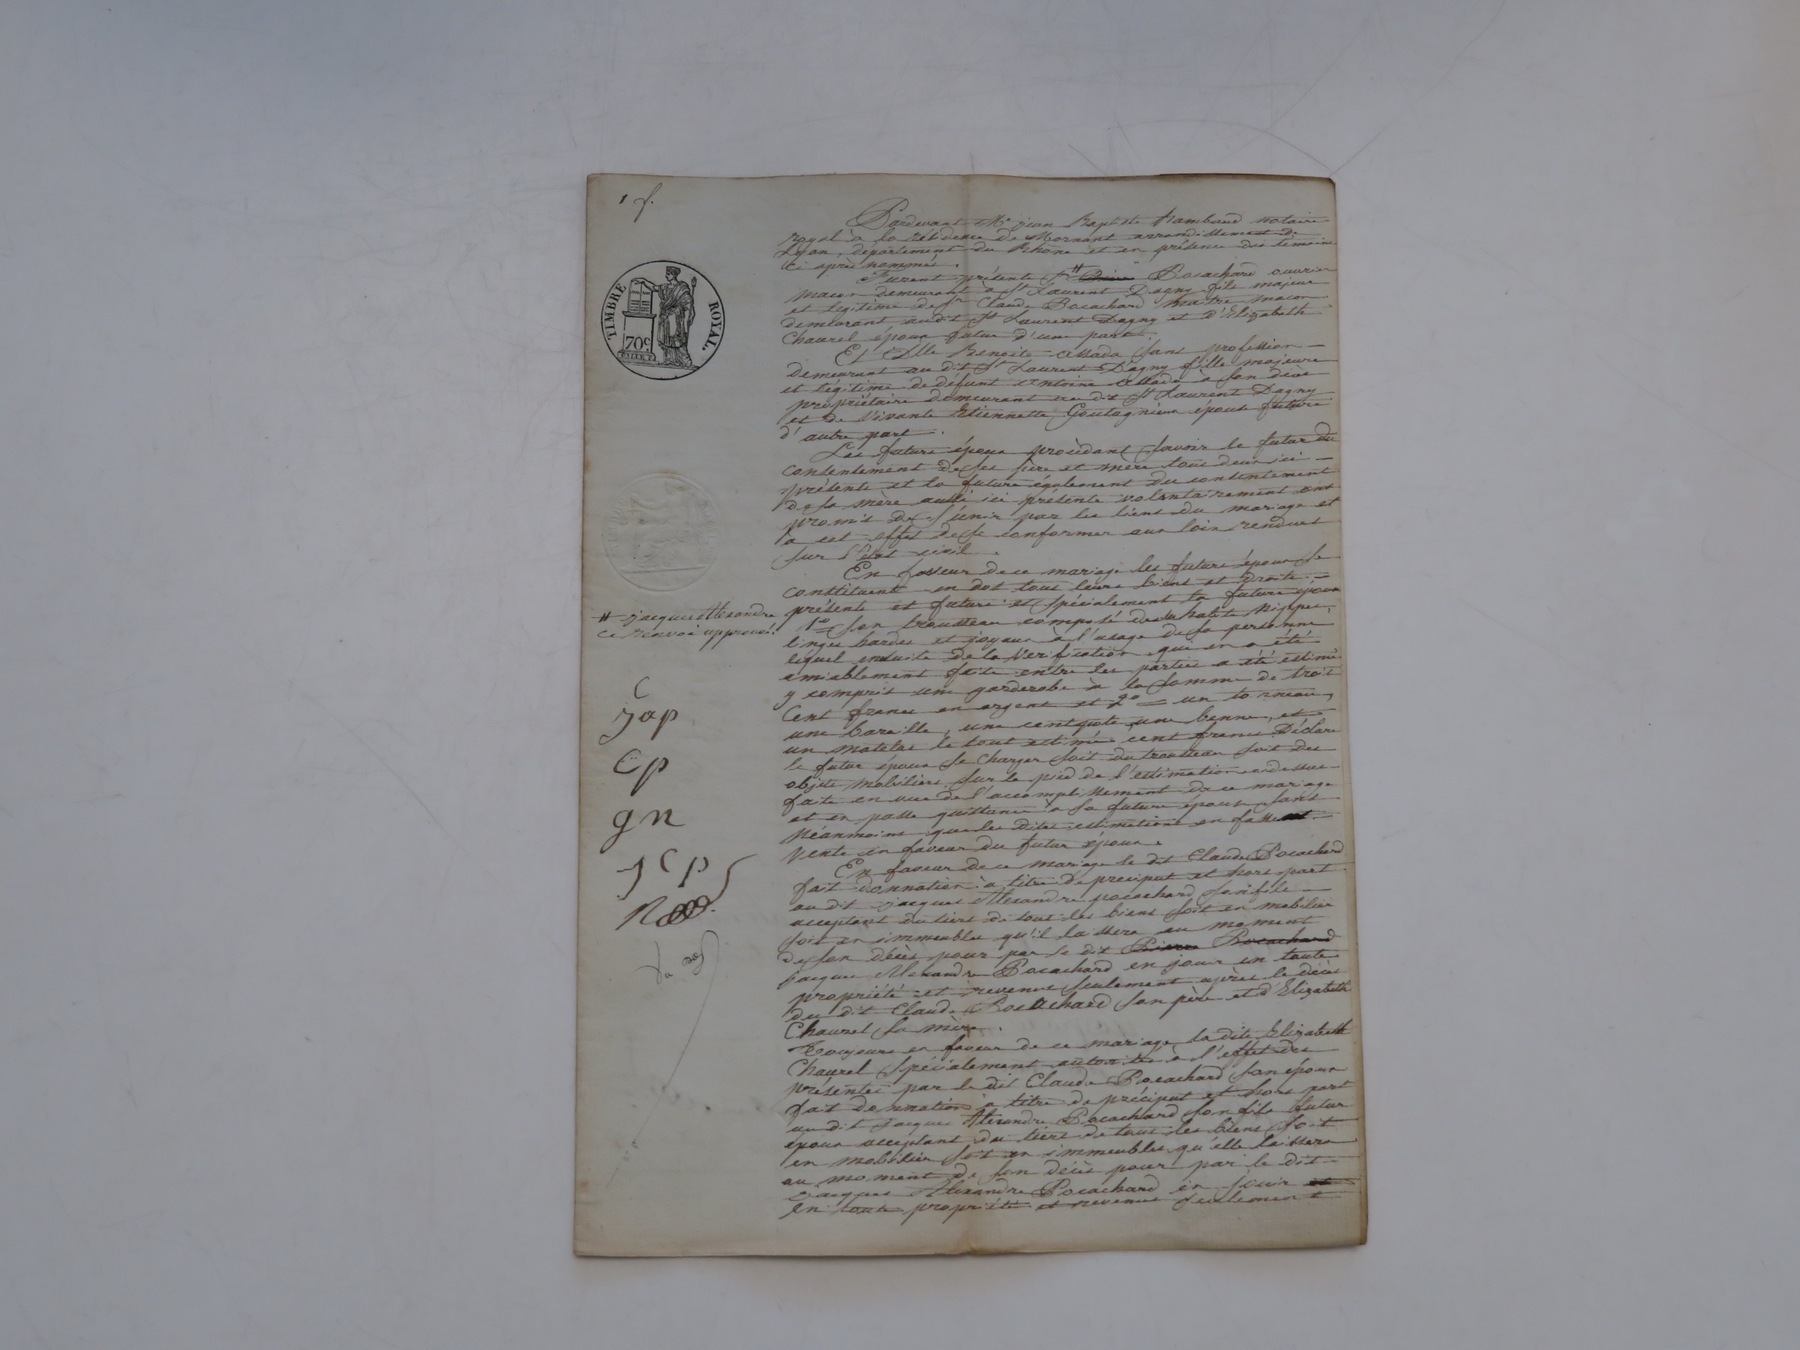 1 f.
TIMBRE ROYAL.
70c
Pardevant Me jean Baptiste Rambaud notaire
royal à la résidence de Mornant arrondissement de
Lyon, département du Rhône et en présence des temoins
ci après nommés.
Furent présents Sr # Pocachard ouvrier
macon demeurant à St Laurent Dagny fils majeur
et légitime de Sr Claude Pocachard maitre macon
demeurant audit St Laurent Dagny et d'Elizabeth
Chaurel époux futur d'une part.
Et Dlle Benoite sans profession
demeurant au dit St Laurent Dagny fille majeure
et légitime de défunt Antoine à son décès
propriétaire demeurant au dit St Laurent Dagny
et de vivante Etiennette Goutagnieu épouse future
d'autre part.
Les futurs époux procèdant savoir le futur du
consentement de ses père et mère tous deux ici
présents et la future également du consentement
de sa mère aussi ici présente volontairement ont
promis de s'unir par les liens du mariage et
à cet effet de se conformer aux loix rendues
sur l'état civil.
En faveur de ce mariage les futurs époux se
constituent en dot tous leurs biens et droits
présents et futurs et spécialement la future épouse
1o son trousseau composé des habits nippes,
linges hardes et joyaux à l'usage de sa personne
lequel ensuite de la vérification qui en a été
amiablement faite entre les parties a été estimé
y compris une garderobe à la somme de trois
cent francs en argent et 2o un tonneau,
une bareille, une une benne, et
un matelas le tout estimé cent francs Déclare
le futur époux se charger soit du trousseau soit des
objets mobiliers sur le pied de l'estimation ci dessus
faite en vue de l'accomplissement de ce mariage
et en passe quittance à sa future épouse sans
néanmoins que les dites estimations en fassent
vente en faveur du futur époux.
En faveur de ce mariage le dit Claude Pocachard
fait donnation à titre de preciput et hors part
au dit jacques Alexandre pocachard son fils
acceptant du tiers de tous les biens soit en mobilier
soit en immeubles qu'il laissera au moment
de son décès pour par le dit Pierre Pocachard
jacques Alexandre Pocachard en jouir en toute
propriété et revenus seulement après le décès
du dit Claude Pocachard son père et d'Elizabeth
Chaurel sa mère.
Toujours en faveur de ce mariage la dite Elizabeth
Chaurel spécialement autorisée à l'effet des
présentes par le dit Claude Pocachard son époux
fait donnation à titre de préciput et hors part
au dit jacques Alexandre Pocachard son fils futur
époux acceptant du tiers de tous les biens soit
en mobilier soit en immeubles qu'elle laissera
au moment de son décès pour par le dit
jacques Alexandre Pocachard en jouir
en toute propriété et revenus seulement
# jacques Alexandre
ce renvoi approuvé.
jap
Cp
gn
jCp